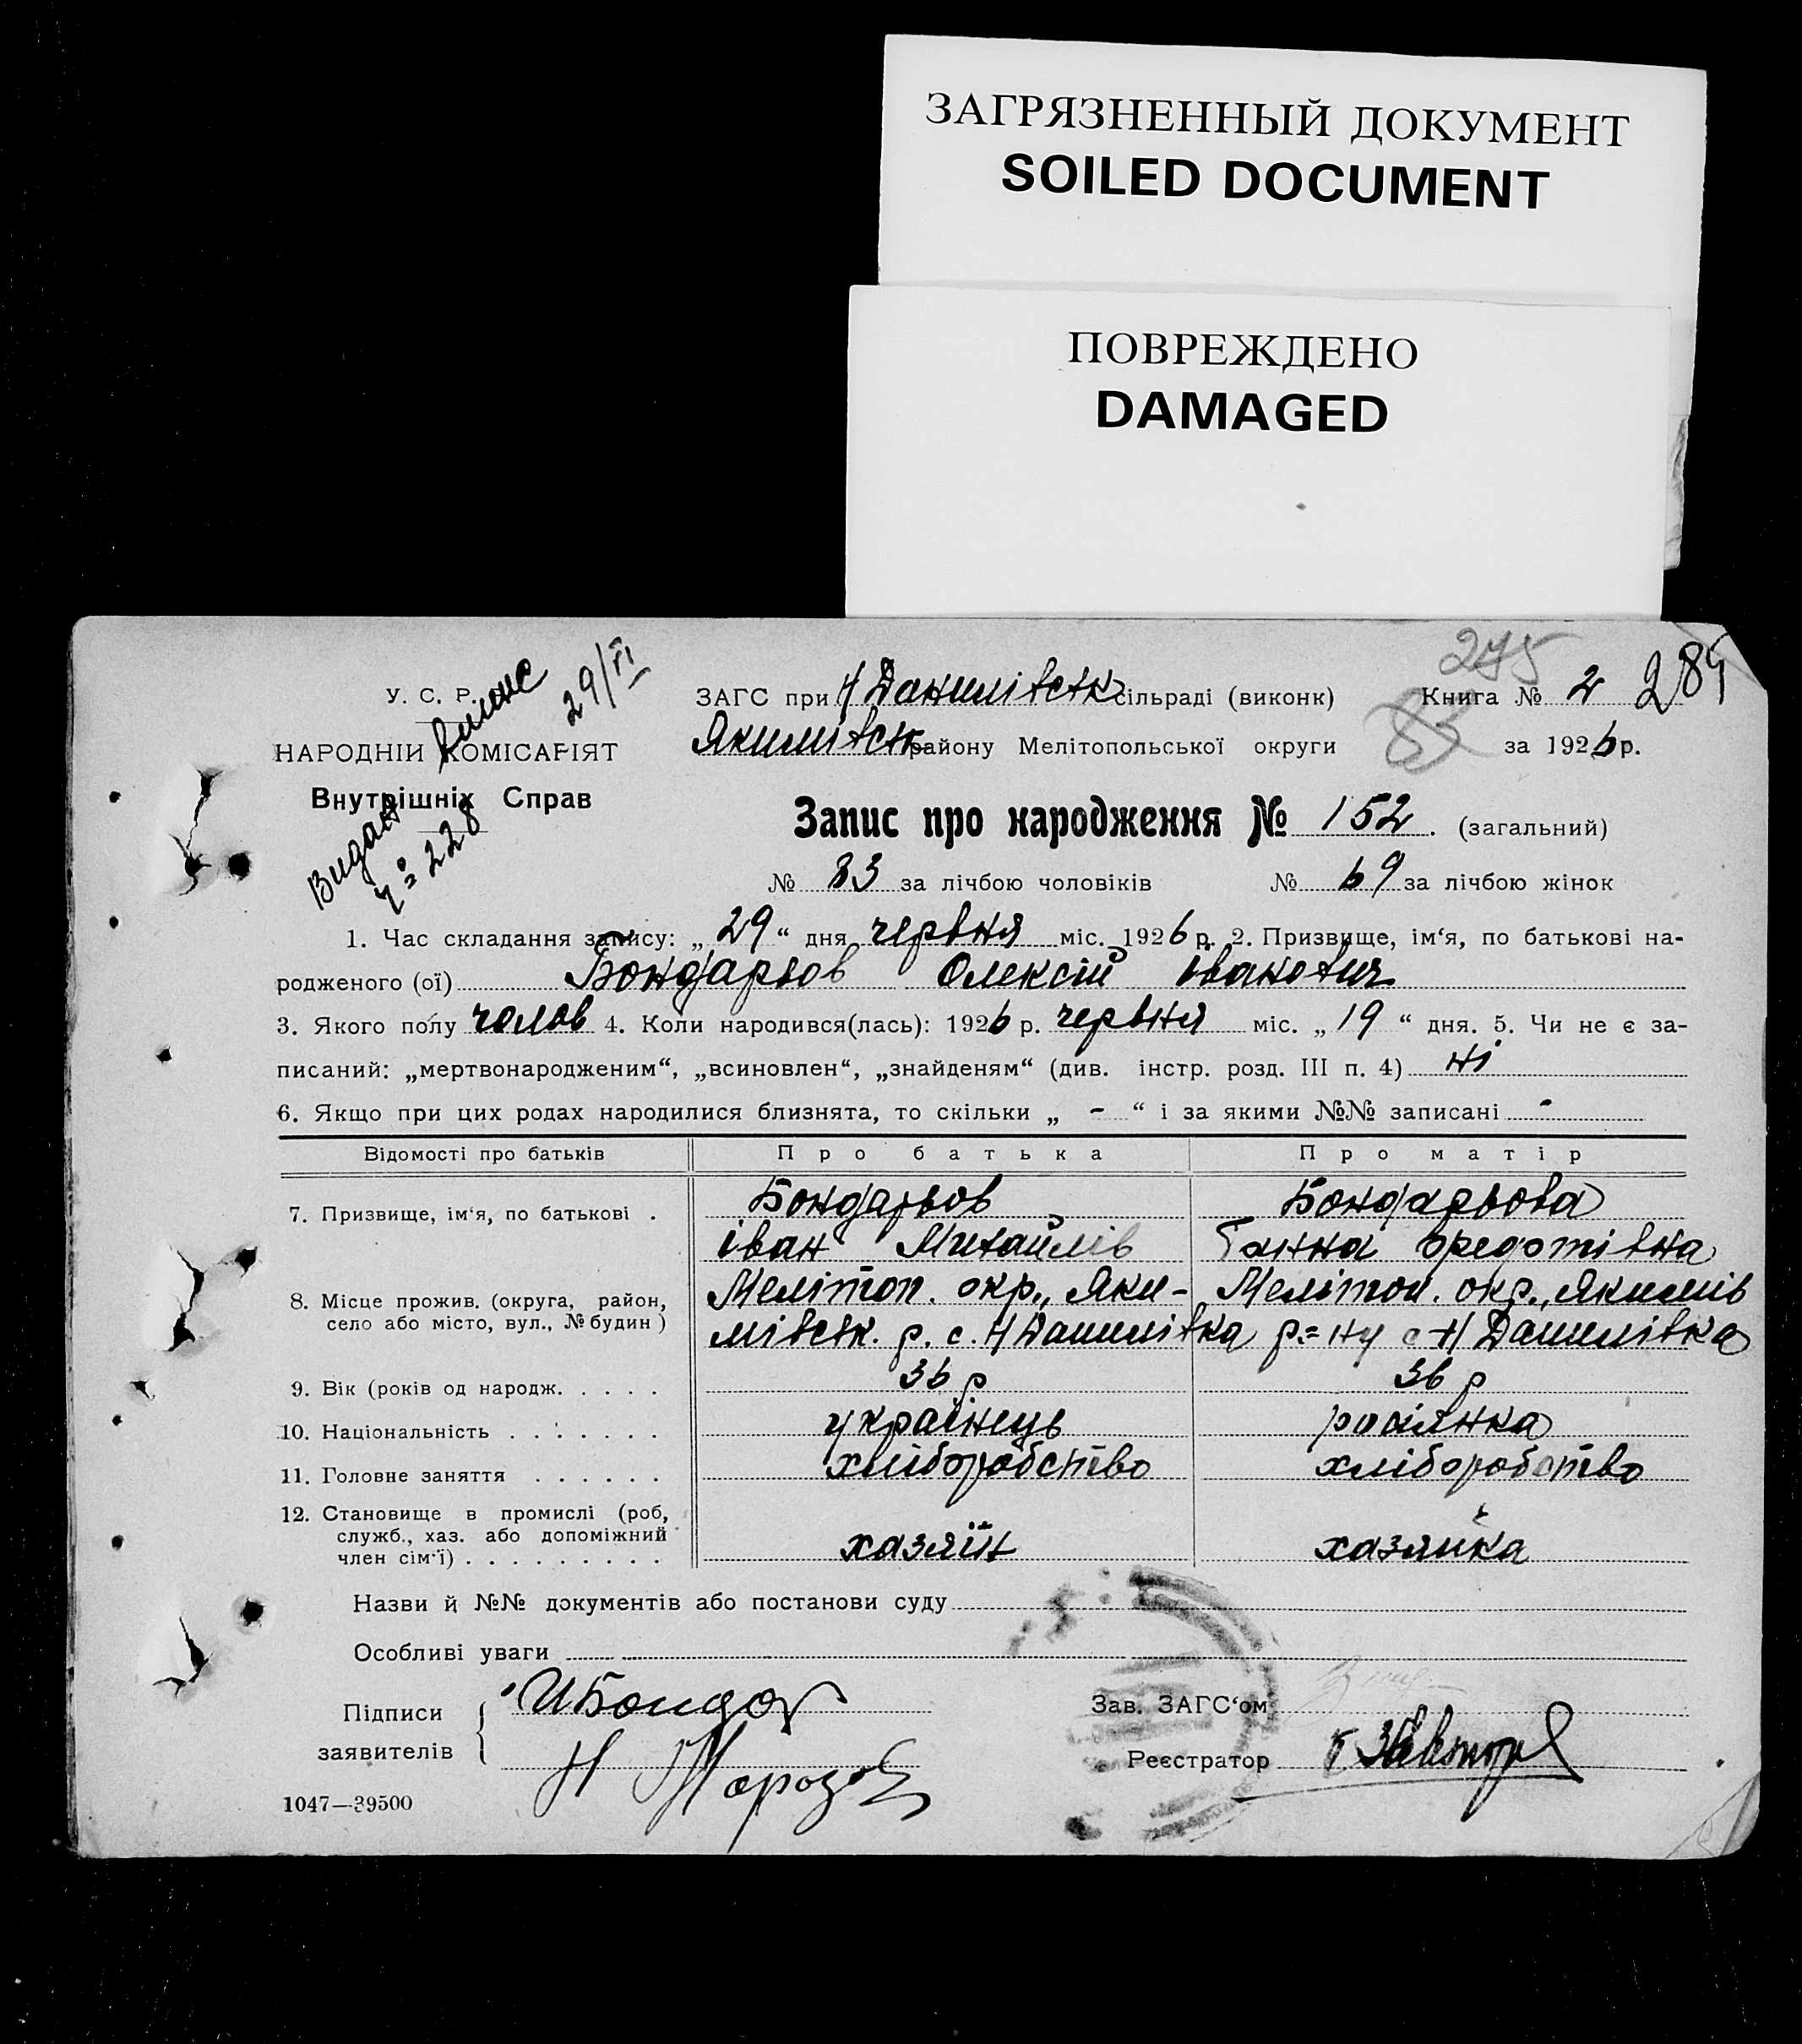 ЗАГРЯЗНЕННЫЙ ДОКУМЕНТ
SOILED DOCUMENT
ПОВРЕЖДЕНО
DAMAGED
275
У. С. Р. ЗАГС при Н Данилівськ сільраді (виконк) Книга № 2 284
29/VI
НАРОДНІЙ КОМІСАРІЯТ Якимівськ району Мелітопольської округи за 1926 р.
Внутрішніх Справ
Видан
ч= 228
Запис про народження № 152. (загальний)
№ 83 за лічбою чоловіків № 69 за лічбою жінок
1. Час складання запису: „ 29 “ дня червня міс. 1926 р. 2. Призвище, ім‘я, по батькові на-
родженого (ої) Бондарьов Олексій Іванович
3. Якого полу чолов 4. Коли народився(лась): 1926 р. червня міс. „ 19 “ дня. 5. Чи не є за-
писаний: „мертвонародженим“, „всиновлен“, „знайденям“ (див. інстр. розд. III п. 4) ні
6. Якщо при цих родах народилися близнята, то скільки „ - “ і за якими №№ записані -
Відомості про батьків Про батька Про матір
7. Призвище, ім‘я, по батькові . Бондарьов Бондарьова
іван Михайлів Ганна
8. Місце прожив. (округа, район, Мелітоп. окр., Яки- Мелітоп. окр., Якимів
село або місто, вул., № будин ) мівськ. р. с. Н Данилівка р=ну с Н Данилівка
9. Вік (років од народж. . . . . 36 р 36 р
10. Національність . . . . . . . українець росіянка
11. Головне заняття . . . . . . хліборобство хліборобство
12. Становище в промислі (роб,
служб., хаз. або допоміжний хазяїн хазяйка
член сім‘ї) . . . . . . . . .
Назви й №№ документів або постанови суду
Особливі уваги
Підписи ИБондар Зав. ЗАГС‘ом
заявителів Н Морозов Реєстратор
1047—39500